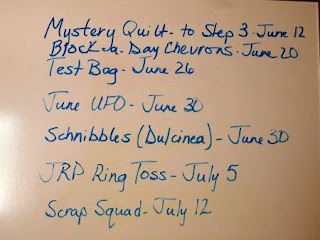 Mystery Quilt - to Step 3 - June 12
Block-a-Day Chevrons - June 20
Test Bag - June 26
June UFO - June 30
Schnibbles (Dulcinea) - June 30
JRP Ring Toss - July 5
Scrap Squad - July 12